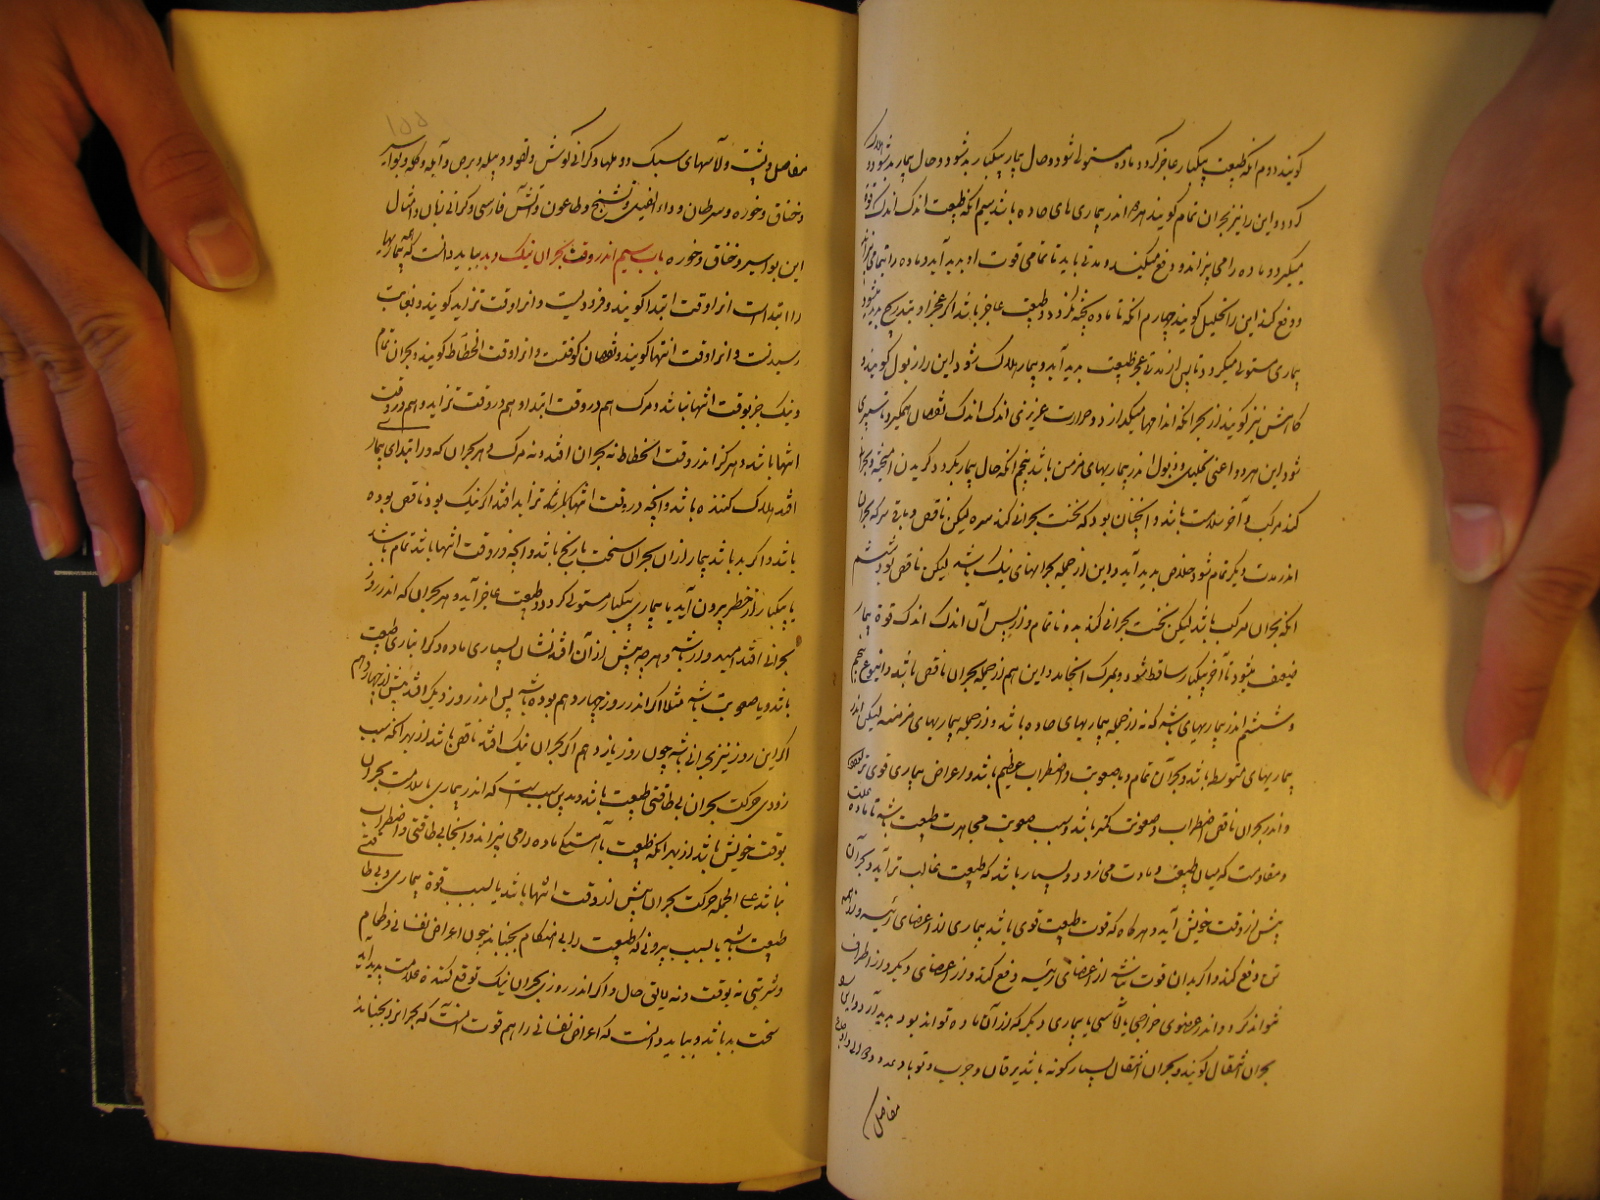 کویند دوم انکه طبیعت بیکبار عاجز کردد و ماده مستولی شود و حال بیمار بیکبار بد شود و حال بیمار بد شود و هلاک
کردد و این را نیز بحران تمام کویند و هر دو اندر بیماری های حاده باشد سیم انکه طبیعت اندک اندک قوة
میکیرد و ماده را می پزاند و دفع میکند و مدتی باید تا تمامی قوت او پدید آید و ماده را بتمامی بپزاند
و دفع کند این را تحلیل کویند چهارم انکه تا ماده پخته نکردد و طبیعت عاجز باشد اکر عجز او بتدریج پدید میشود
بیماری مستولی میکردد تا پس از مدتی عجز طبیعت پدید آید و بیمار هلاک شود و این را ذبول کویند و
کاهش نیز کویند از بهر انکه اندامها میکدازد و حرارت غریزی اندک اندک نقصان همیکیرد تا سپری
شود و این هر دو اعنی تحلیل و ذبول اندر بیماریهای مزمن باشد پنجم انکه حال بیمار بکردد کردیدن آمیخته و بحران
کند مرکب و آخر سلامت باشد و انچنان بود که نخست بحرانی کند سره لیکن ناقص و باقی سر که بحران
اندر مدت دیکر تمام شود و خلاص پدید آید و این از جمله بحرانهای نیک باشد لیکن ناقص بود ششم
انکه بحران مرکب باشد لیکن نخست بحرانی کند بد و ناتمام و از پس آن اندک اندک قوة بیمار
ضعیف میشود تا آخر بیکبار ساقط شود و بمرک انجامد و این هم از جمله بحران ناقص باشد و این نوع پنجم
و ششم اندر بیماریهای باشد که نه از جمله بیماریهای حاده باشد و نه از جمله بیماریهای مزمنه لیکن اندر
بیماریهای متوسط باشد و بحران تمام و با صعوبت و اضطراب عظیم باشد و اعراض بیماری قوی تر
و اندر بحران ناقص اضطراب و صعوبت کمتر باشد و سبب صعوبت مجاهدت طبیعت باشد با ماده
و مقاومت که میان طبیعت و مادت می رود و بسیار باشد که طبیعت غالب تر آید و بحران
پیش از وقت خویش آید و هر کاه که قوت طبیعت قوی باشد بیماری از اعضای رئیسه و از همه
تن دفع کند و اکر بدان قوت نباشد از اعضای رئیسه دفع کند و از اعضای دیکر و از اطراف
نتواند کرد و اندر عضوی خراجی یا آماسی یا بیماری دیکر که از آن ماده تواند بود پدید آرد و این را
بحران انتقال کویند و بحران انتقال بسیار کونه باشد یرقان و جرب و قوبا و غدد و دوالی و اوجاع
مفاصل
۱۵۵
مفاصل و پشت و آماسهای سبک و دملها و کرانی کوش و لقوه و دبیله و برص و آبله و کله و بواسیر
و خناق و خوره و سرطان و داء الفیل و تشنج و طاعون و آتش فارسی و کرانی زبان و امثال
این بواسیر و خناق و خوره باب سیم اندر وقت بحران نیک و بد بباید دانست که همه بیماریها
را ابتداست انرا وقت ابتدا کویند و فزودنیست و انرا وقت تزاید کویند و بغایت
رسیدنست و انرا وقت انتها کویند و نقصان کرفتنست و انرا وقت انحطاط کویند و بحران تمام
و نیک جز بوقت انتها نباشد و مرک هم در وقت ابتدا و هم در وقت تزاید و هم در وقت
انتها باشد و هرکز اندر وقت انحطاط نه بحران افتد و نه مرک و هر بحران که در ابتدای بیماری
افتد هلاک کننده باشد و انچه در وقت تزاید افتد اکر نیک بود ناقص بوده
باشد و اکر بد باشد بیمار از ان بحران سخت با رنج باشد و انچه در وقت انتها باشد تمام باشد
یا بیکبار از خطر بیرون آید یا بیماری بیکبار مستولی کردد و طبیعت عاجز آید و هر بحران که اندر روز
بحرانی افتد امیدوار باشد و هر چه پیش از آن افتد نشان بسیاری ماده و کرانباری طبیعت
باشد و یا صعوبت باشد مثلا اکر اندر روز چهاردهم بوده باشد پس اندر روز دیکر افتد پیش از چهاردهم
اکر این روز نیز بحرانی باشد چون روز یازدهم اکر بحران نیک افتد ناقص باشد از بهر انکه سبب
زودی حرکت بحران بی طاقتی طبیعت باشد و بدین سبب است که اندر بیماری با سلامت بحران
بوقت خویش باشد از بهر انکه طبیعت بآهستکی ماده را می پزاند و انجا بی طاقتی و اضطراب
نباشد علی الجمله حرکت بحران پیش از وقت انتها باشد یا بسبب قوة بیماری و بی طاقتی
طبیعت باشد یا بسبب بیرونی که طبیعت را بی هنکام بجنباند چون اعراض نفسانی و طعام
و شربتی نه بوقت و نه لایق حال و اکر اندر روز بحران نیک توقع کننده علامت بد پدید آید
سخت بد باشد و بباید دانست که اعراض نفسانی را هم قوت انست که بحرانرا بجنباند